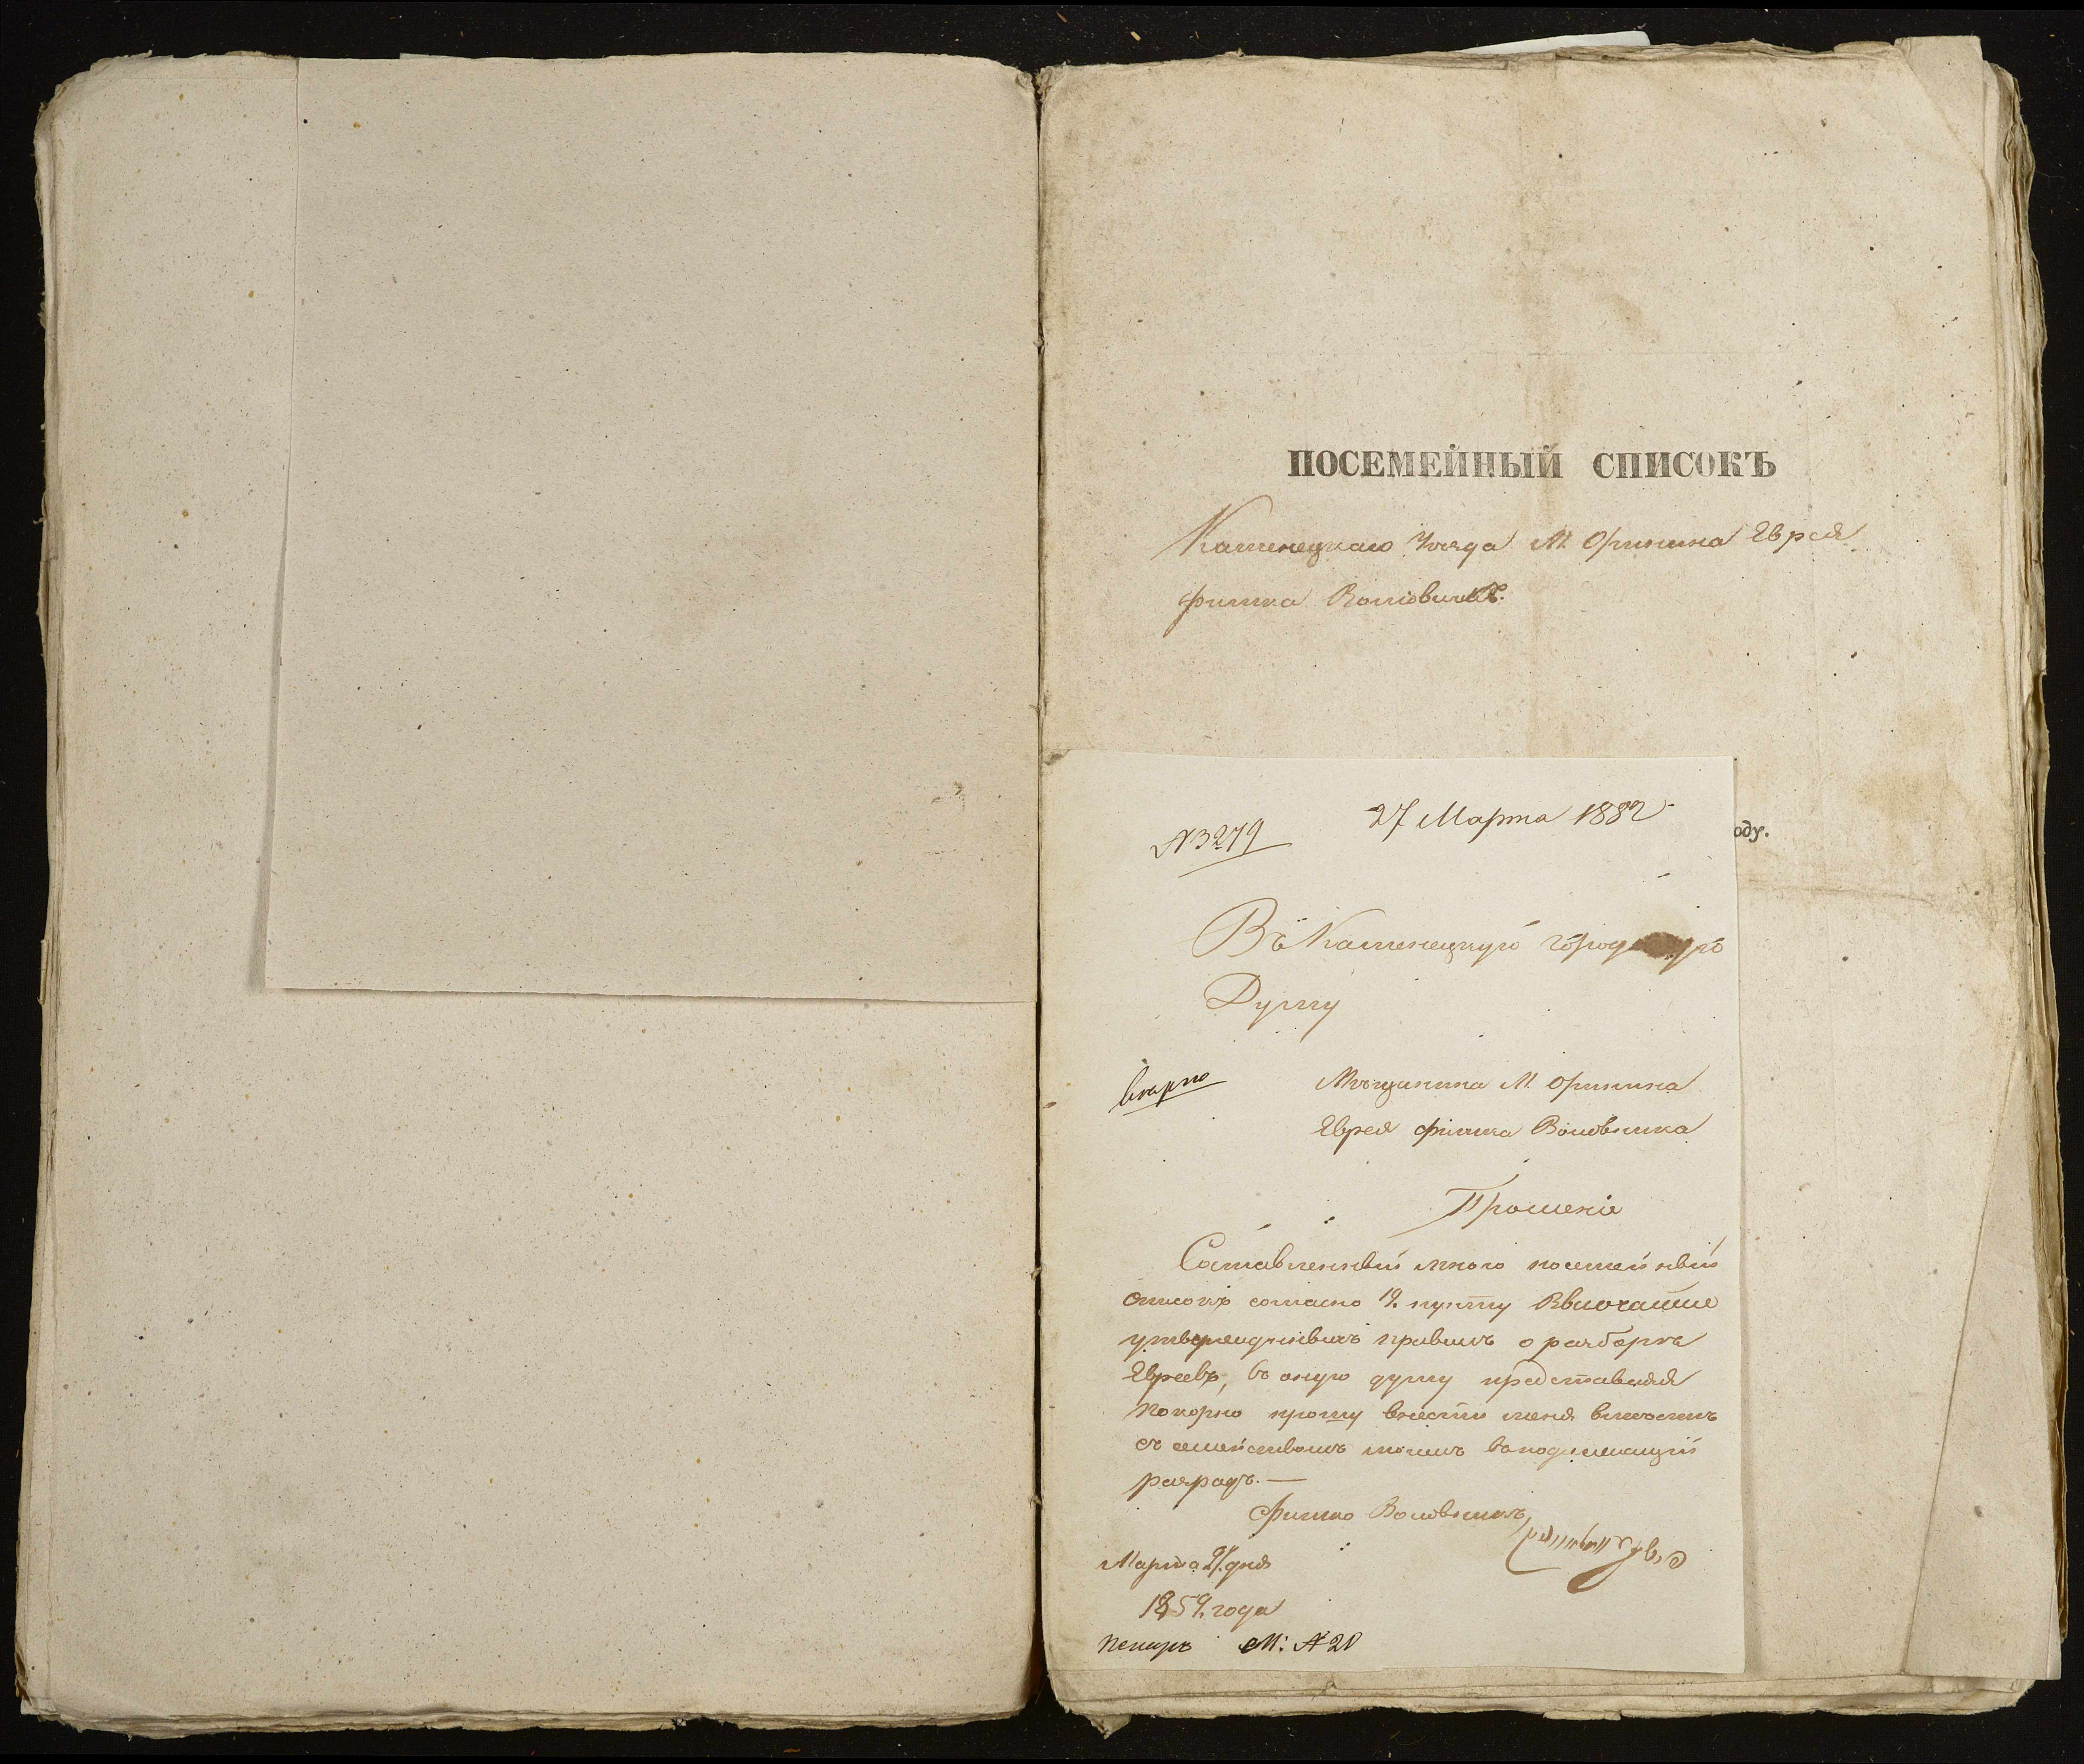 ПОСЕМЕЙНЫЙ СПИСОКЪ
Каменецкаго Уѣзда М. Оринина Еврея
Фишка
оду.
№ 3279
27 Марта 1882
Въ Каменецкую
Думу
вѣрно
Мѣщанина М. Оринина
Еврея Фишка Воловника
Прошеніе
Составленный мною посемейный
списокъ согласно 19. пункту Высочайше
утвержденныхъ правилъ о разборѣ
Евреевъ, въ оную думу представляя
покорно прошу внести меня вмѣстѣ
съ семействомъ моимъ въ подлежащій
разрядъ. —
Фишко Воловникъ
Марта 27. дня
1859. года
М: № 20